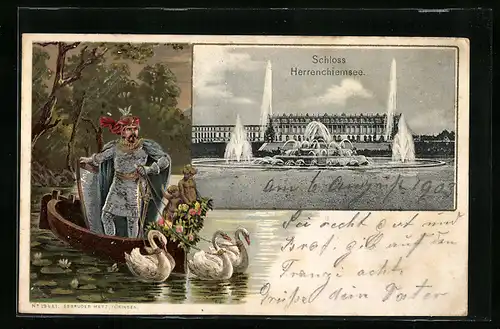 Schloss
Herrenchiemsee.
Am 6 August 190
Sei recht gut und
Brav. gib auf den
Franzi acht.
Grüße dein Vater
GEBRUDER METZ, TÜBINGEN.